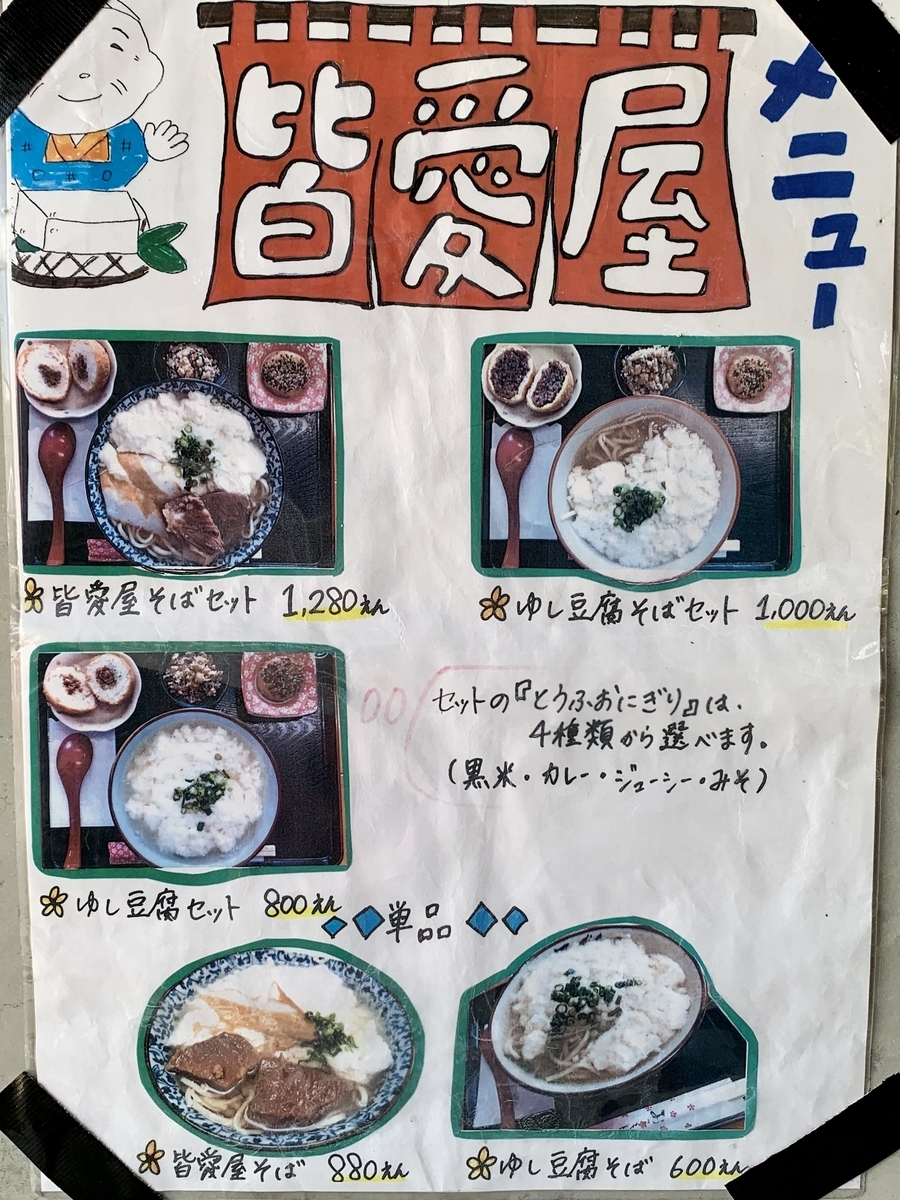 皆愛屋
メニュー
皆愛屋そばセット 1,280えん
ゆし豆腐そばセット 1,000えん
ゆし豆腐セット 800えん
セットの『とうふおにぎり』は、
4種類から選べます。
（黒米・カレー・ジューシー・みそ）
単品
皆愛屋そば 880えん
ゆし豆腐そば 600えん